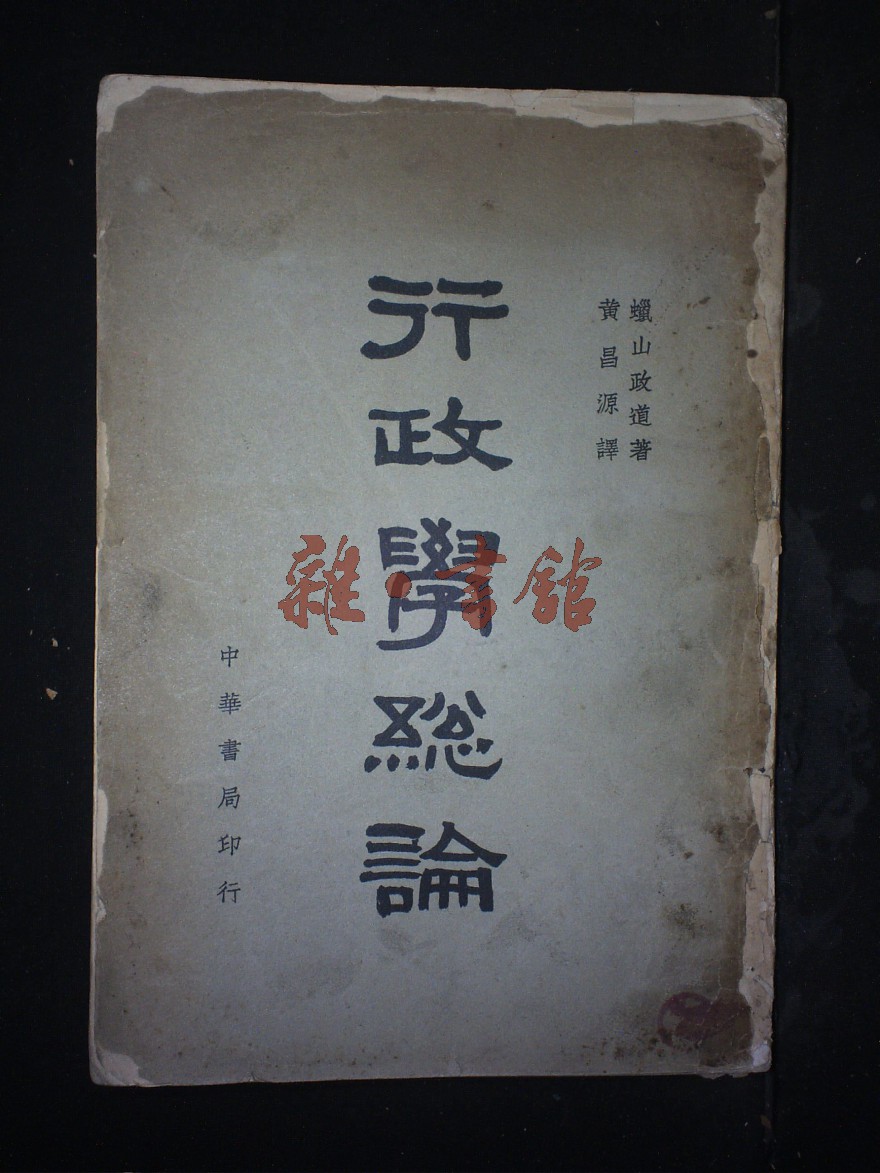 蠟山政道著
黃昌源譯
行政學總論
中華書局印行
雜·書館